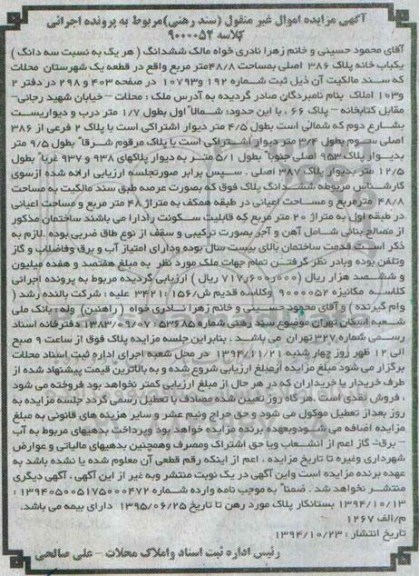 آگهی مزایده اموال غیر منقول (سند رهنی) مربوط به پرونده اجرائی
کلاسه ۹۰۰۰۰۵۲
آقای محمود حسینی و خانم زهرا نادری خواه مالک ششدانگ ( هر یک به نسبت سه دانگ )
یکباب خانه پلاک ۳۸۶ اصلی بمساحت ۴۸/۸متر مربع واقع در قطعه یک شهرستان محلات
که سند مالکیت آن ذیل ثبت شماره ۱۹۲ و۱۰۷۹۳ در صفحه ۴۰۳ و ۲۹۸ در دفتر ۲
و۱۰۳ املاک بنام نامبردگان صادر گردیده به آدرس ملک : محلات - خیابان شهید رجائی-
مقابل کتابخانه - پلاک ۶۶ ، با این حدود: شمالاً اول بطول ۱/۷ متر درب و دیواریست
بشارع دوم که شمالی است بطول ۴/۵ متر دیوار اشتراکی است با پلاک ۲ فرعی از ۳۸۶
اصلی سوم بطول ۳/۶ متر دیوار اشتراکی است با پلاک مرقوم شرقاً بطول ۹/۵ متر
بدیوار پلاک ۹۵۲ اصلی جنوباً بطول ۵/۱ متر به دیوار پلاکهای ۹۳۸ و ۹۳۷ غرباً بطول
۱۲/۵ متر بدیوار پلاک ۳۸۷ اصلی . سپس برابر صورتجلسه ارزیابی ارائه شده ازسوی
کارشناس مربوطه ششدانگ پلاک فوق که بصورت عرصه طبق سند مالکیت به مساحت
۴۸/۸ مترمربع و مساحت اعیانی در طبقه همکف به متراژ ۴۸ متر مربع و مساحت اعیانی
در طبقه اول به متراژ ۲۰ متر مربع که قابلیت سکونت رادارا می باشند ساختمان مذکور
از مصالح بنائی شامل آهن و آجر بصورت ترکیبی و سقف از نوع طاق ضربی بوده .لازم به
ذکر است قدمت ساختمان بالای بیست سال بوده ودارای امتیاز آب و برق وفاضلاب و گاز
وتلفن بوده وبادر نظر گرفتن تمام جهات ملک مورد نظر به مبلغ هفتصد و هفده میلیون
و ششصد هزار ریال (۷۱۷٫۶۰۰٫۰۰۰ ریال ) ارزیابی گردیده مربوط به پرونده اجرائی
کلاسه مکانیزه ۹۰۰۰۰۵۲ وکلاسه قدیم ش/۳۴۲۱/۱۵۶ علیه : شرکت بالنده رشد (
وام گیرنده ) و آقای محمود حسینی و خانم زهرا نادری خواه ( راهنین) وله : بانک ملی
شعبه استان تهران موضوع سند رهنی شماره ۵۳۶۸۵-۱۳۸۳/۰۹/۰۷ دفترخانه اسناد
رسمی شماره ۳۲۷ تهران می باشد . بنابراین جلسه مزایده پلاک فوق از ساعت ۹ صبح
الی ۱۲ ظهر روز چهار شنبه ۱۳۹۴/۱۱/۲۱ در محل شعبه اجرای اداره ثبت اسناد محلات
برگزار می شود مبلغ مزایده ازمبلغ ارزیابی شروع شده و به بالاترین قیمت پیشنهاد شده از
طرف خریدار یا خریداران که در هر حال از مبلغ ارزیابی کمتر نخواهد بود فروخته می شود
، فروش نقدی است . هر گاه روز تعیین شده مصادف با تعطیل رسمی گردد جلسه مزایده به
روز بعداز تعطیل موکول می شود و حق حراج ونیم عشر و سایر هزینه های قانونی به مبلغ
مزایده اضافه می شودوبعهده برنده مزایده خواهد بود وپرداخت بدهیهای مربوط به آب
- برق- گاز اعم از انشعاب ویا حق اشتراک ومصرف وهمچنین بدهیهای مالیاتی و عوارض
شهرداری وغیره تا تاریخ مزایده ، اعم از اینکه رقم قطعی آن معلوم شده یا نشده باشد به
عهده برنده مزایده است واین آگهی در یک نوبت منتشر وبه غیر از این آگهی ، آگهی دیگری
منتشر نخواهد شد . ضمناً به موجب نامه وارده شماره ۱۳۹۴۰۵۰۰۵۱۷۵۰۰۰۴۷۲ :
۱۳۹۴/۱۰/۱۳ بستانکار پلاک مورد رهن تا تاریخ ۱۳۹۵/۰۶/۲۵ دارای بیمه می باشد.
م/الف ۱۲۶۷
تاریخ انتشار : ۱۳۹۴/۱۰/۲۳
رئیس اداره ثبت اسناد واملاک محلات - علی صالحی